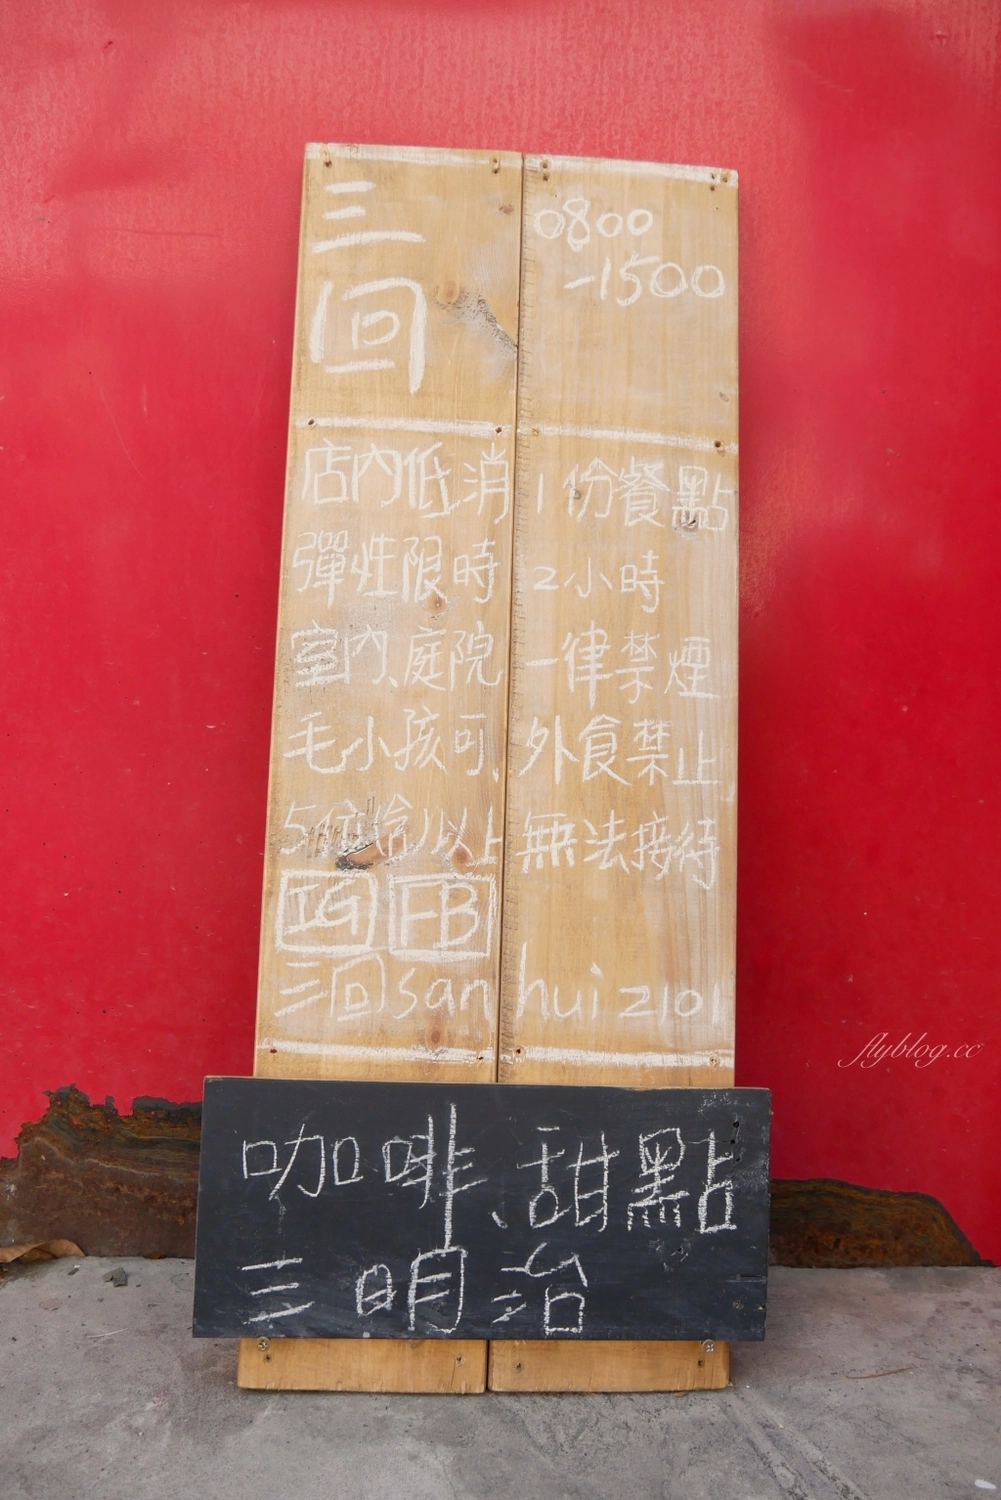 三回
0800
-1500
店內低消 1份餐點
彈性限時 2小時
室內、庭院 一律禁煙
毛小孩可、外食禁止
5位(含)以上 無法接待
IG FB
三回sanhui2101
咖啡、甜點
三明治
flyblog.cc